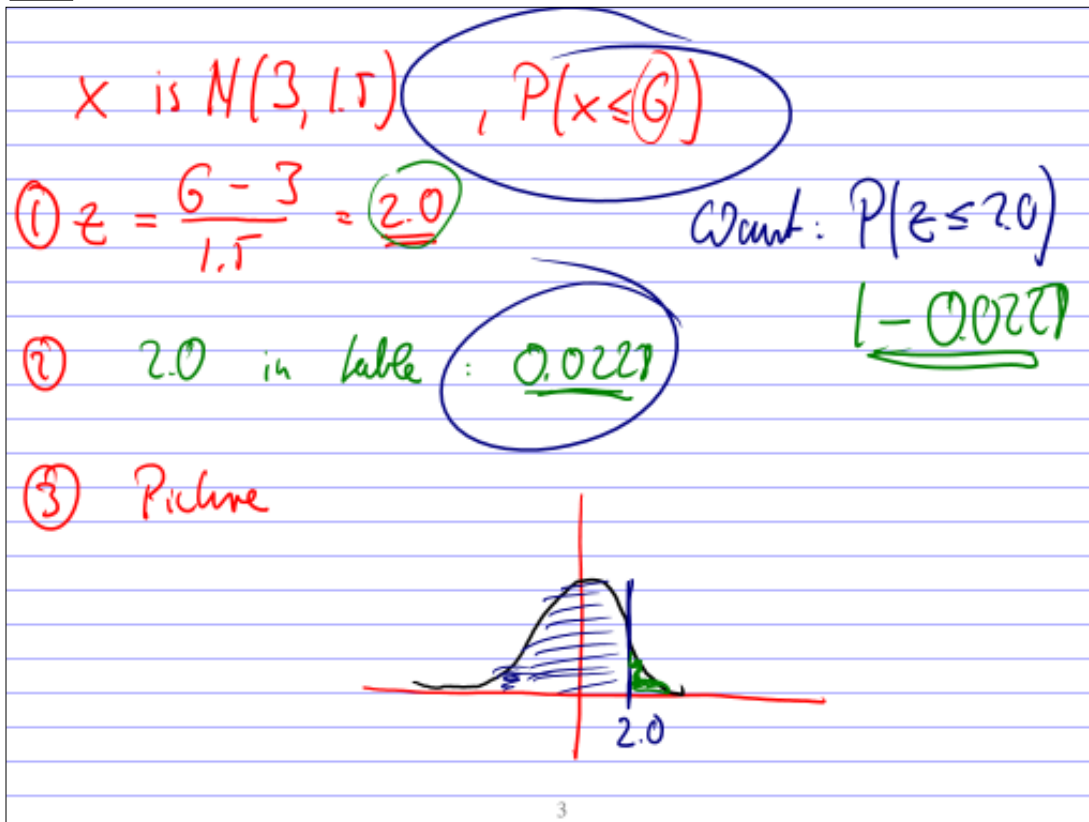 x is N(3, 1.5) , P(x ≤ 6)
① z = 6 - 3 / 1.5 = 2.0 Want: P(z ≤ 2.0)
1 - 0.0228
② 2.0 in table : 0.0228
③ Picture
2.0
3